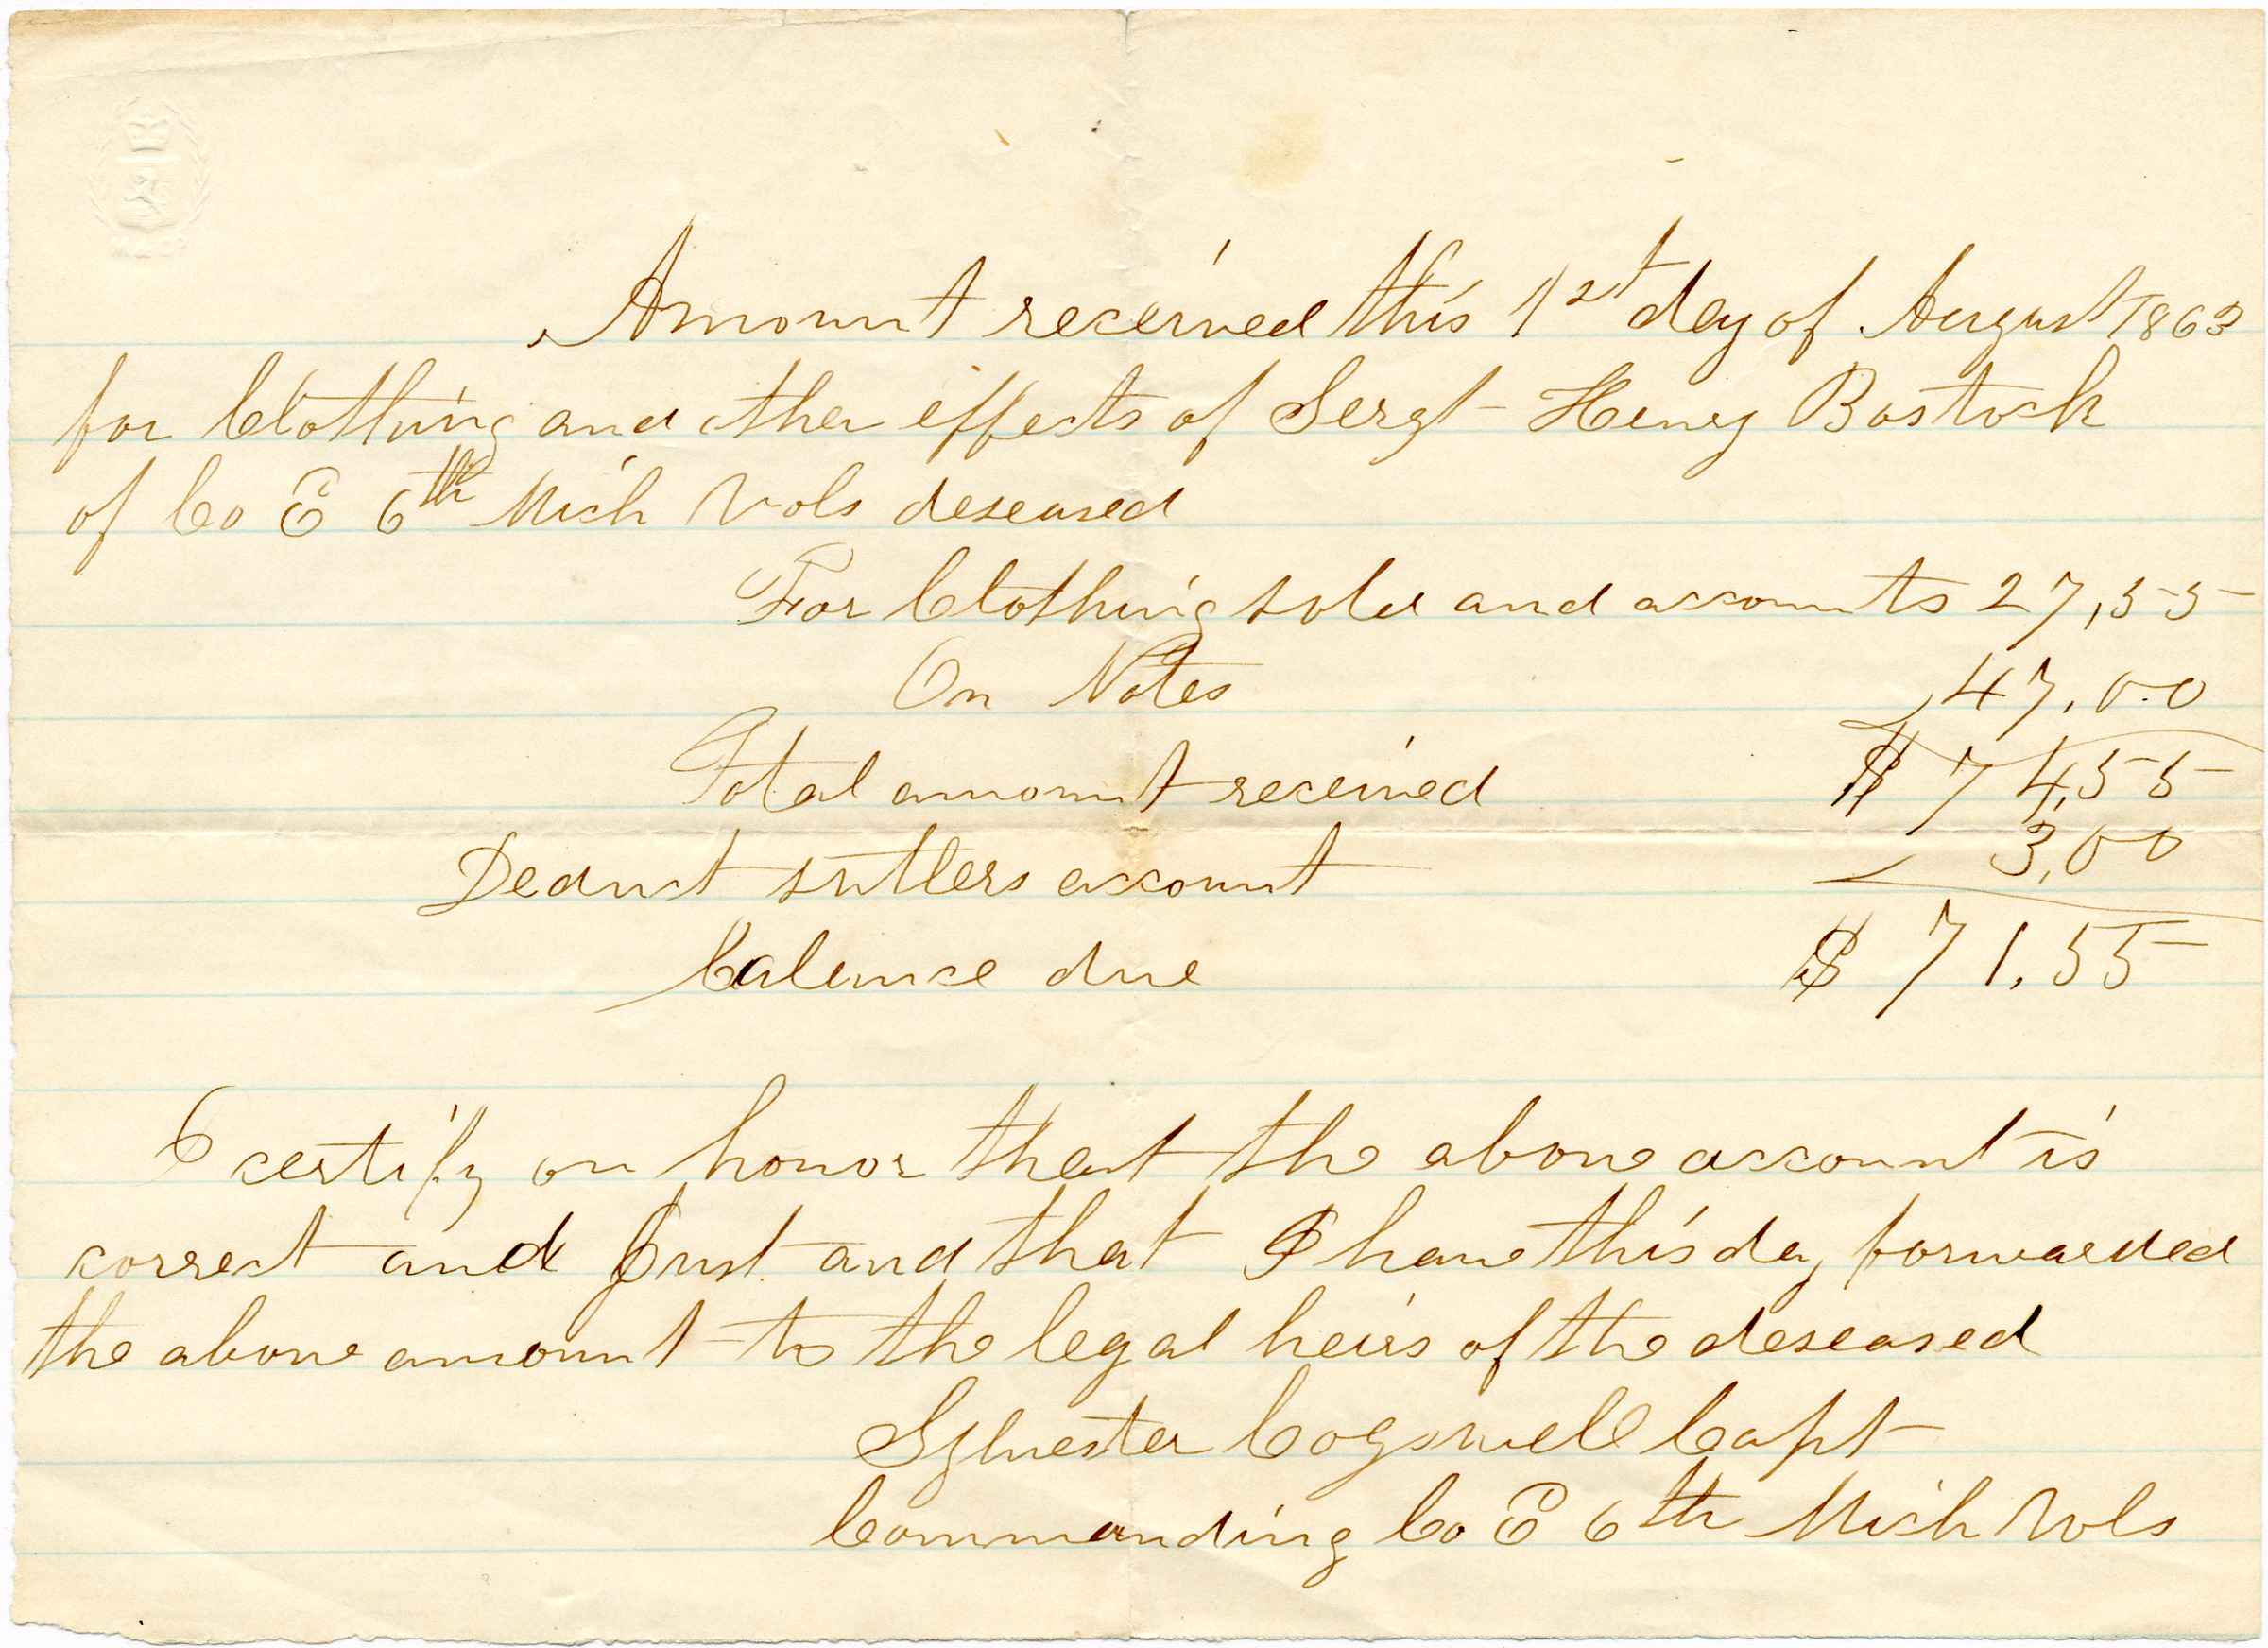 Amount received this 1st day of August 1863
for Clothing and other effects of Sergt Henry Bostock
of Co E 6th Mich Vols deseased
For Clothing sold and accounts 27,55
On Notes 47,00
Total amount received $74,55
Deduct sutlers account 3,00
balance due $71,55
I certify on honor that the above account is
correct and just and that I have this day forwarded
the above amount to the legal heirs of the deseased
Sylvester Cogswell Capt
Commanding Co E 6th Mich Vols